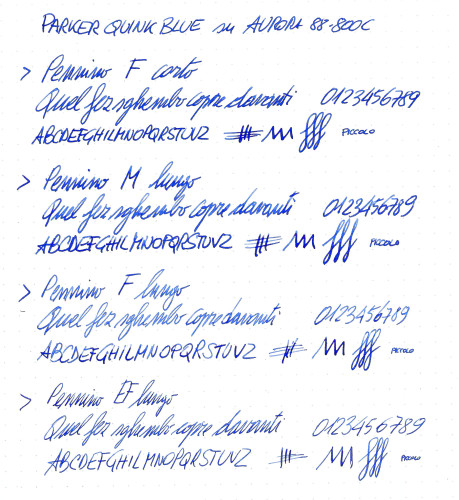 PARKER QUINK BLUE su AURORA 88-800C
> Pennino F corto
Quel fez sghembo copre davanti 0123456789
ABCDEFGHILMNOPQRSTUVZ fff PICCOLO
> Pennino M lungo
Quel fez sghembo copre davanti 0123456789
ABCDEFGHILMNOPQRSTUVZ fff PICCOLO
> Pennino F lungo
Quel fez sghembo copre davanti 0123456789
ABCDEFGHILMNOPQRSTUVZ fff PICCOLO
> Pennino EF lungo
Quel fez sghembo copre davanti 0123456789
ABCDEFGHILMNOPQRSTUVZ fff PICCOLO